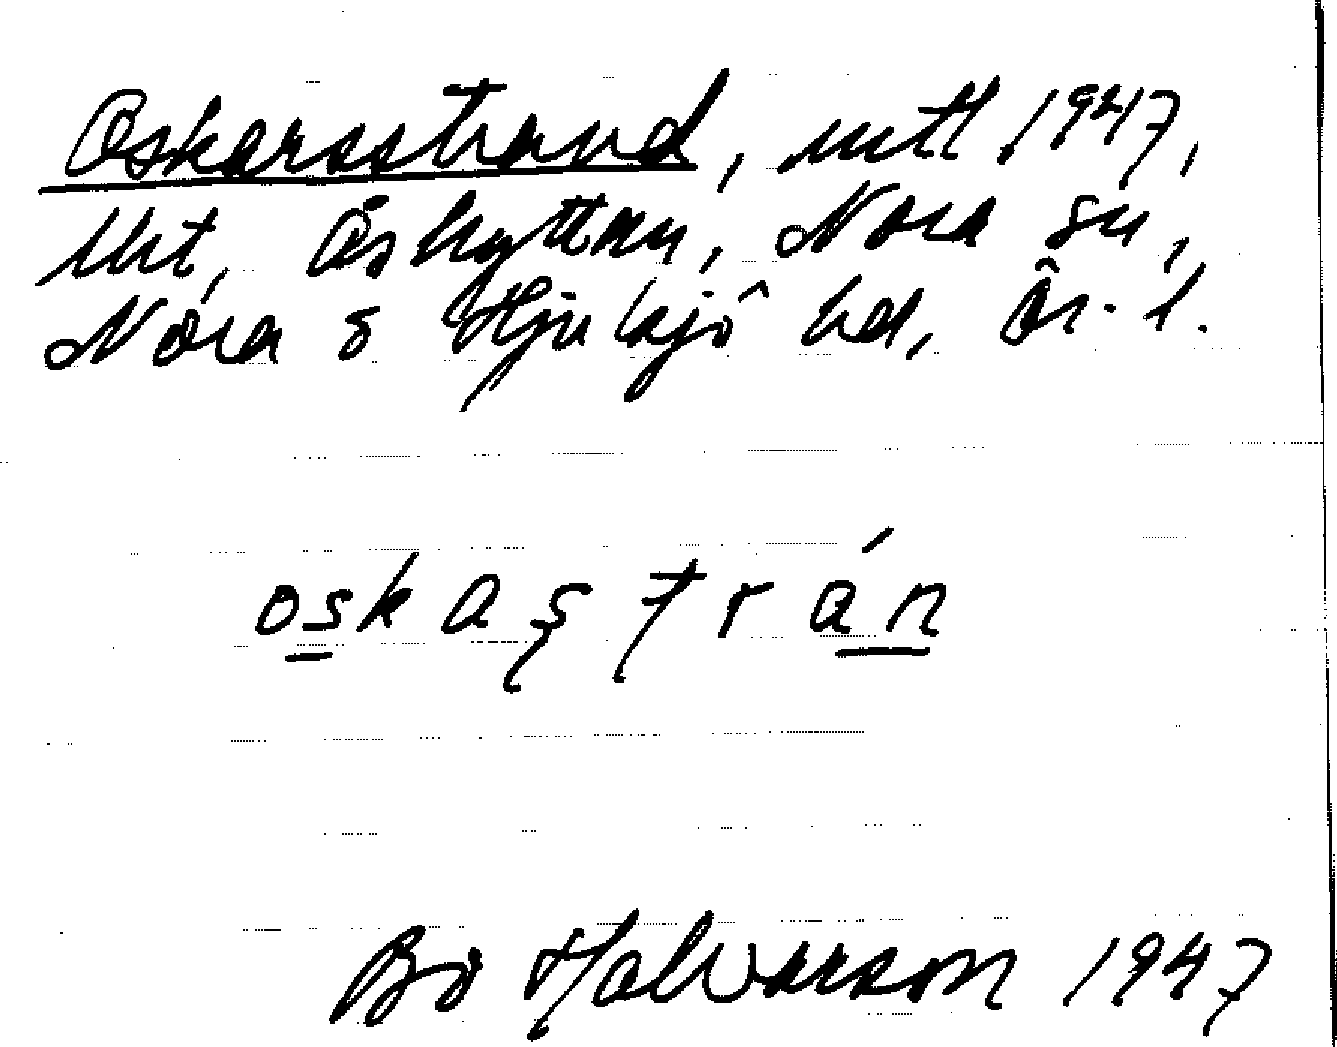 Oskarsstrand, untl 1947,
lht, Åshyttan, Nora sn,
Nora & Hjulsjö hd, Ör. l.
oskaştrán
Bo Halvarson 1947